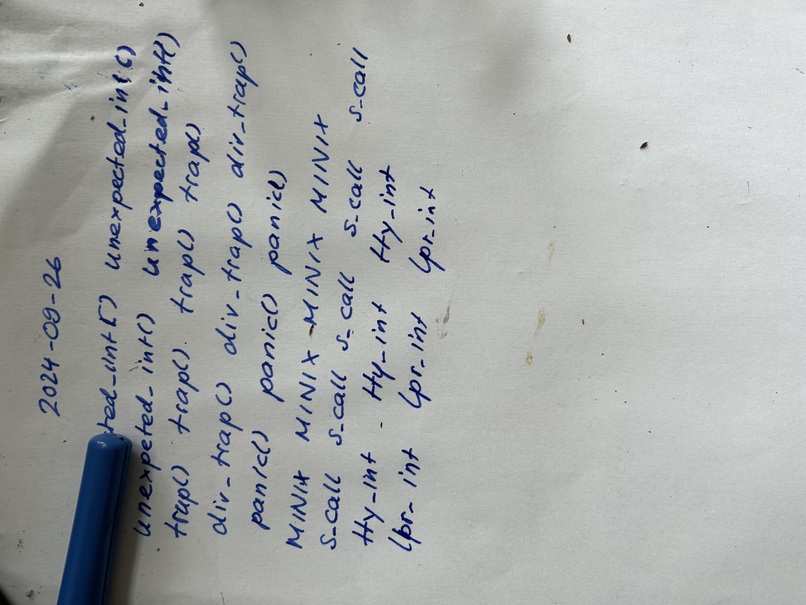 2024-09-26
unexpected_int()
unexpeted_int() unexpected_int()
trap() trap() trap() trap()
div_trap() div_trap() div_trap()
panic() panic() panic()
MINIX MINIX MINIX MINIX
s_call s_call s_call s_call s_call
tty_int tty_int tty_int
lpr_int lpr_int lpr_int